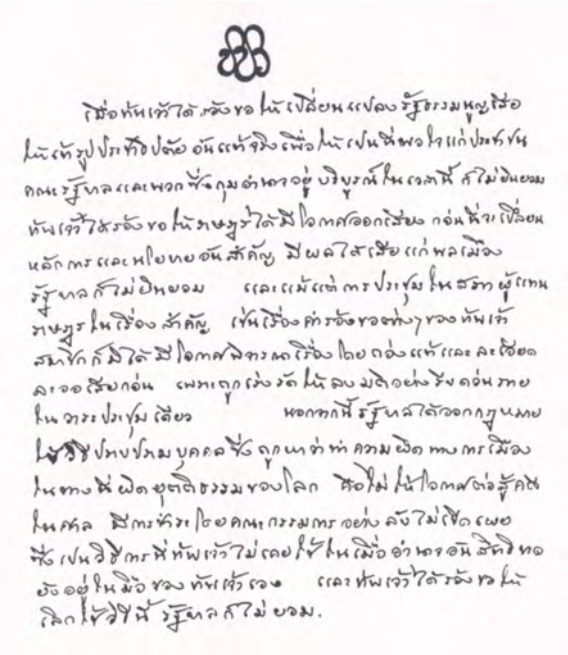 เมื่อข้าพเจ้าได้ร้องขอให้เปลี่ยนแปลงรัฐธรรมนูญเสีย
ให้เข้ารูปประชาธิปตัยอันแท้จริงเพื่อให้เปนที่พอใจแก่ประชาชน
คณะรัฐบาลและพวกซึ่งกุมอำนาจอยู่บริบูรณ์ในเวลานี้ก็ไม่ยินยอม
ข้าพเจ้าได้ร้องขอให้ราษฎรได้มีโอกาสออกเสียง ก่อนที่จะเปลี่ยน
หลักการและนโยบายอันสำคัญ มีผลได้เสียแก่พลเมือง
รัฐบาลก็ไม่ยินยอม และแม้แต่การประชุมในสภาผู้แทน
ราษฎรในเรื่องสำคัญ เช่นเรื่องคำร้องขอต่างๆของข้าพเจ้า
สมาชิกก็มิได้มีโอกาสพิจารณาเรื่องโดยถ่องแท้และละเอียด
ละออเสียก่อน เพราะถูกเร่งรัดให้ลงมติอย่างรีบด่วนภาย
ในวาระประชุมเดียว นอกจากนี้รัฐบาลได้ออกกฎหมาย
ใช้วิธีปราบปรามบุคคลซึ่งถูกหาว่าทำความผิดทางการเมือง
ในทางที่ผิดยุตติธรรมของโลก คือไม่ให้โอกาสต่อสู้คดี
ในศาล มีการชำระโดยคณะกรรมการอย่างลับไม่เปิดเผย
ซึ่งเปนวิธีการที่ข้าพเจ้าไม่เคยใช้ในเมื่ออำนาจอันสิทธิขาด
ยังอยู่ในมือของข้าพเจ้าเอง และข้าพเจ้าได้ร้องขอให้
เลิกใช้วิธีนี้ รัฐบาลก็ไม่ยอม.